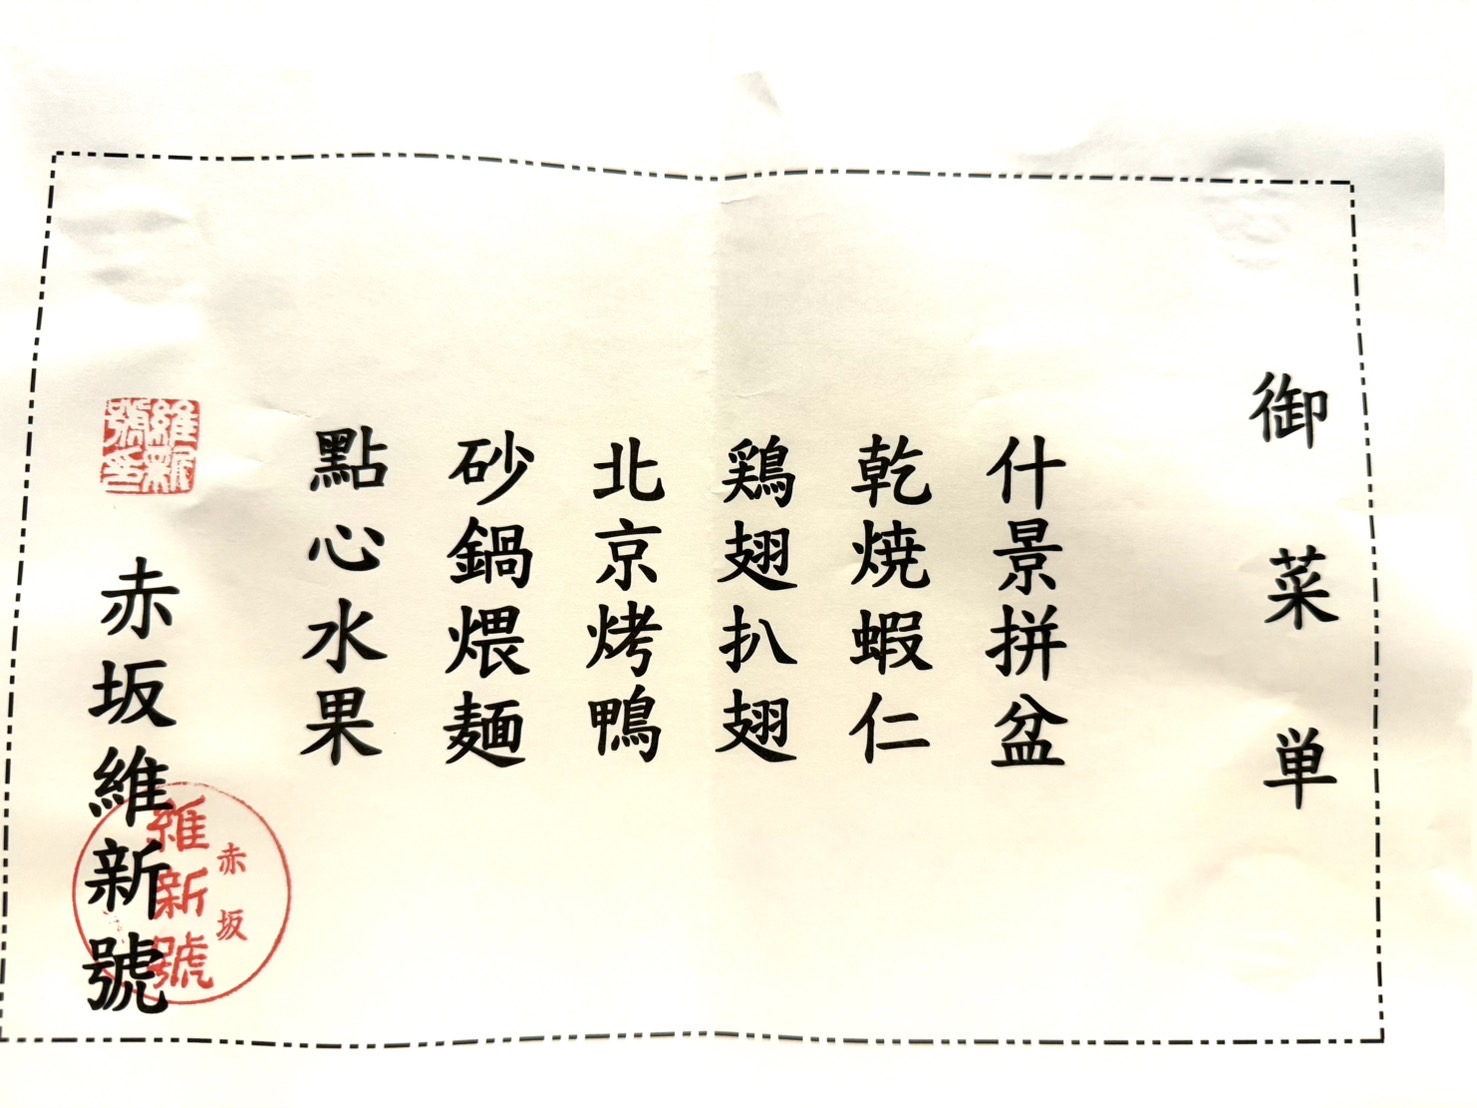 御菜単
什景拼盆
乾焼蝦仁
鶏翅扒翅
北京烤鴨
砂鍋煨麺
點心水果
赤坂維新號
維新號印
赤坂
維新號